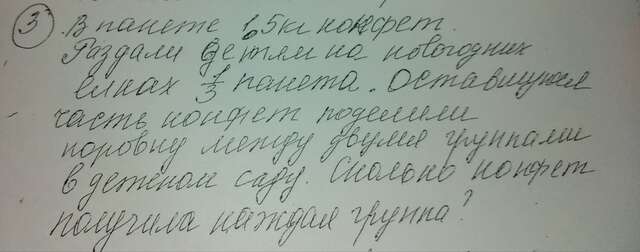 ③ В пакете 1,5 кг конфет.
Раздали детям на новогодних
елках 1/3 пакета. Оставшуюся
часть конфет поделили
поровну между двумя группами
в детском саду. Сколько конфет
получила каждая группа?